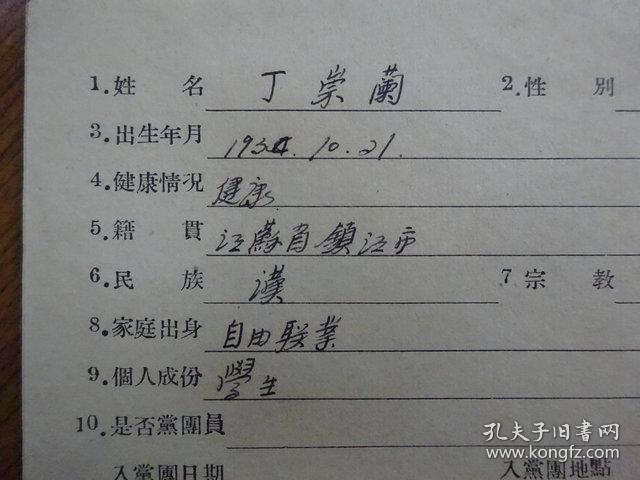 1.姓 名 丁崇蘭 2.性 別
3.出生年月 1934.10.21.
4.健康情况 健康
5.籍 貫 江蘇省鎮江市
6.民 族 漢 7 宗 教
8.家庭出身 自由職業
9.個人成份 學生
10.是否黨團員
入黨團日期 入黨團地點
孔夫子旧书网
www.kongfz.com